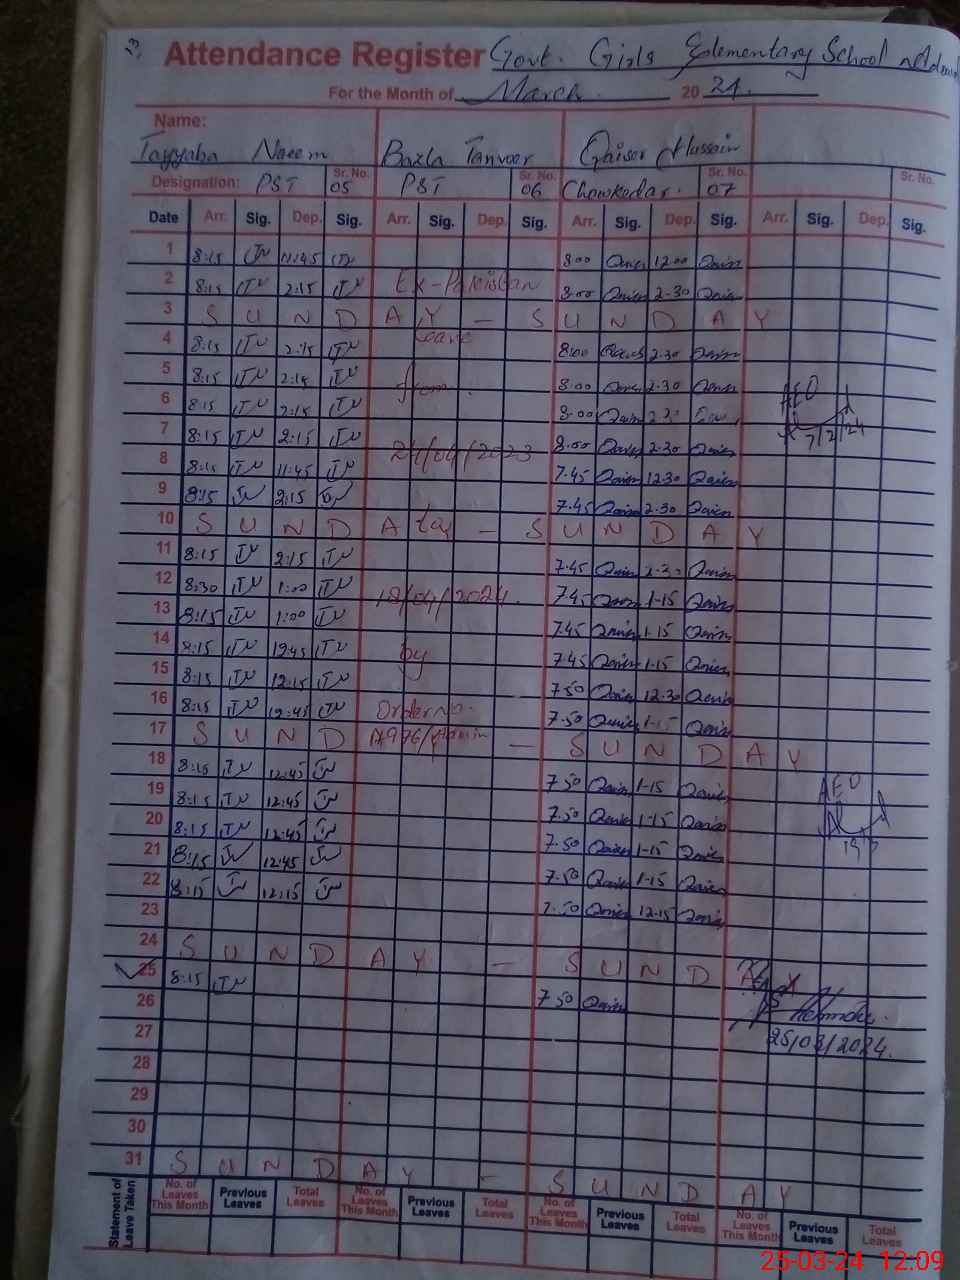 13
Attendance Register Govt. Girls Elementary School
For the Month of March 2024.
Name:
Tayyaba Naeem Bazla Tanveer Qaiser Hussain
Designation: PST Sr. No. 05 PST Sr. No. 06 Chowkedar. Sr. No. 07 Sr. No.
Date Arr. Sig. Dep. Sig. Arr. Sig. Dep. Sig. Arr. Sig. Dep. Sig. Arr. Sig. Dep. Sig.
1 8:15 TN 11:45 TN 8:00 Qaiser 12:00 Qaiser
2 8:15 TN 2:15 TN Ex-Pakistan 8:00 Qaiser 2-30 Qaiser
3 S U N D A Y - S U N D A Y
4 8:15 TN 2:15 TN Leave 8:00 Qaiser 2-30 Qaiser
5 8:15 TN 2:15 TN from 8:00 Qaiser 2-30 Qaiser
6 8:15 TN 2:15 TN 8:00 Qaiser 2-30 AEO
7 8:15 TN 2:15 TN 24/04/2023 8:00 Qaiser 2-30 Qaiser
8 8:15 TN 11:45 TN 7.45 Qaiser 12-30 Qaiser
9 8:15 TN 2:15 TN 7.45 Qaiser 2-30 Qaiser
10 S U N D A Y - S U N D A Y
11 8:15 TN 2:15 TN 7.45 Qaiser 2-30 Qaiser
12 8:30 TN 1:00 TN 7.45 Qaiser 1-15 Qaiser
13 8:15 TN 1:00 TN 7.45 Qaiser 1-15 Qaiser
14 8:15 TN 12:45 TN by 7.45 Qaiser 1-15 Qaiser
15 8:15 TN 12:15 TN 7.50 Qaiser 12-30 Qaiser
16 8:15 TN 12:45 TN Order No. 7.50 Qaiser 1-15 Qaiser
17 S U N D - S U N D A Y
18 8:15 TN 12:45 TN
19 8:15 TN 12:45 TN 7.50 Qaiser 1-15 Qaiser AEO
20 8:15 TN 12:45 TN 7.50 Qaiser 1-15 Qaiser
21 8:15 TN 12:45 TN 7.50 Qaiser 1-15 Qaiser
22 8:15 TN 12:15 TN 7.50 Qaiser 1-15 Qaiser
23 7.50 Qaiser 12-15 Qaiser
24 S U N D A Y - S U N D A Y
25 8:15 TN
26 7.50 Qaiser
27 25/03/2024.
28
29
30
31 S U N D A Y - S U N D A Y
Statement of Leave Taken No. of Leaves This Month Previous Leaves Total Leaves No. of Leaves This Month Previous Leaves Total Leaves No. of Leaves This Month Previous Leaves Total Leaves No. of Leaves This Month Previous Leaves Total Leaves
25-03-24 12.09